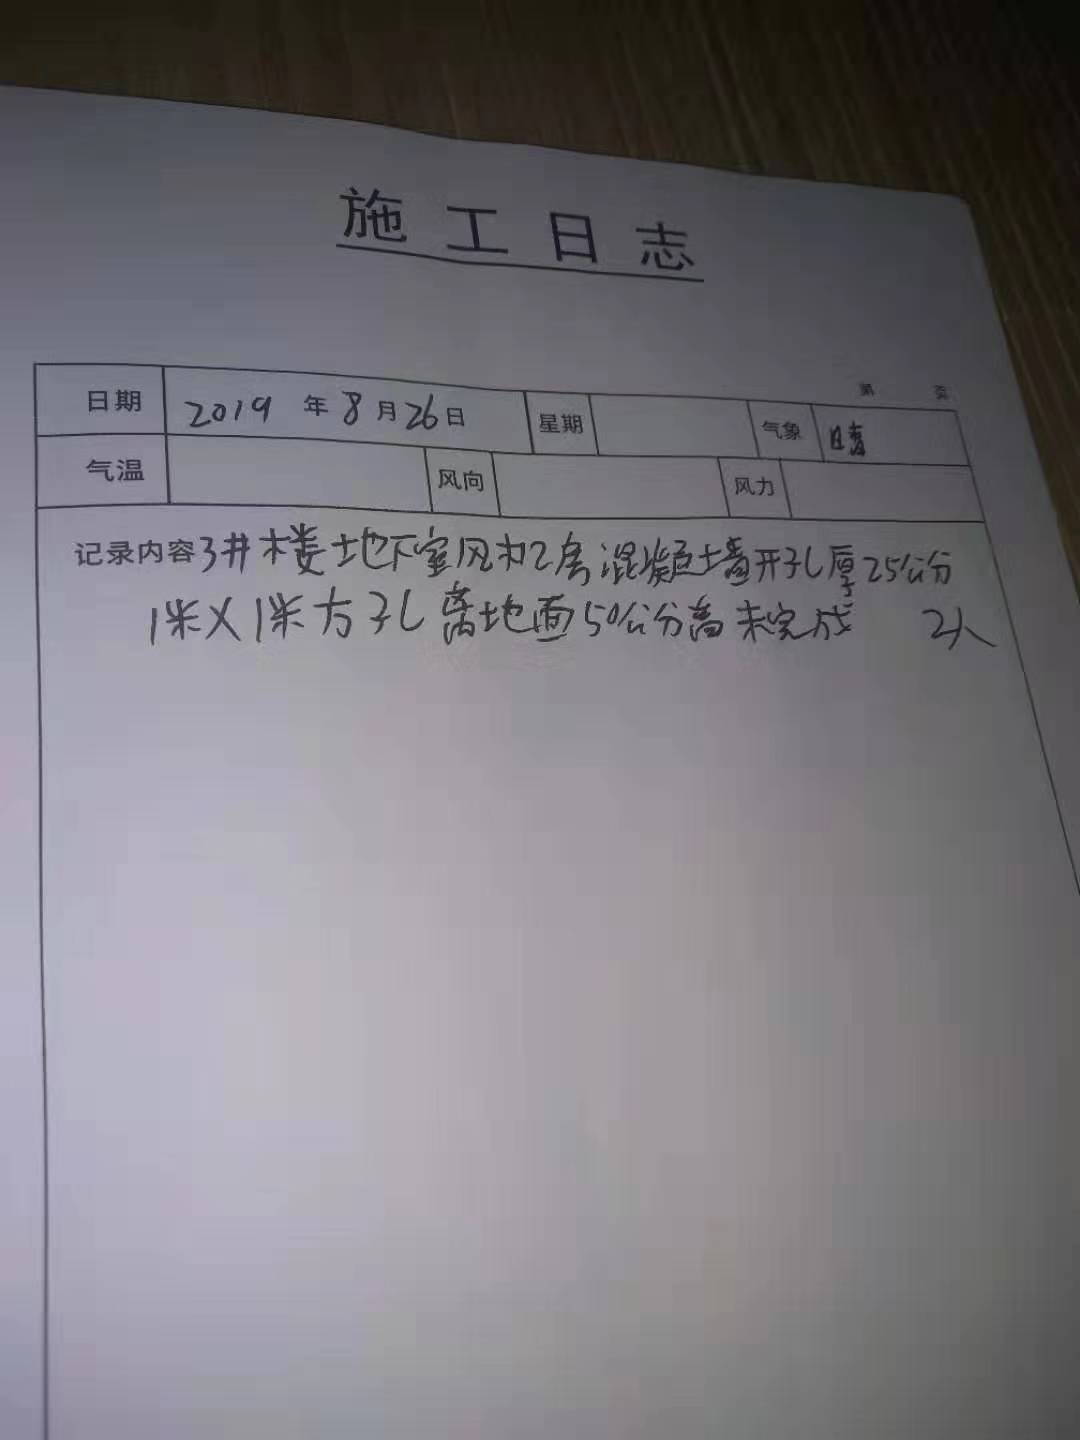 施工日志
第 页
日期 2019 年 8 月 26 日 星期 气象 晴
气温 风向 风力
记录内容 3井楼地下室风机房混凝土墙开孔厚25公分
1米X1米方孔离地面50公分高未完成 2人